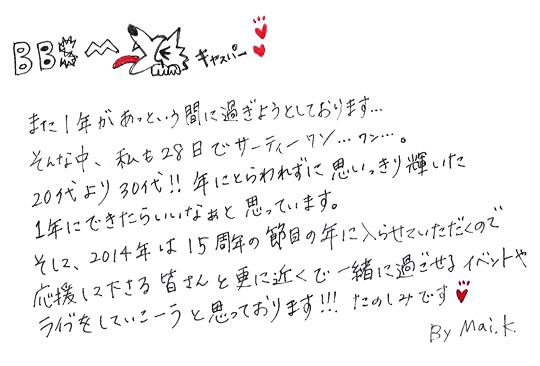 BB🐾へ キャスパー
また1年があっという間に過ぎようとしております…
そんな中、私も28日でサーティーワン…ワン…。
20代より30代!! 年にとらわれずに思いっきり輝いた
1年にできたらいいなぁと思っています。
そして、2014年は15周年の節目の年に入らせていただくので
応援して下さる皆さんと更に近くで一緒に過ごせるイベントや
ライブをしていこーうと思っております!!! たのしみです
By Mai.K.